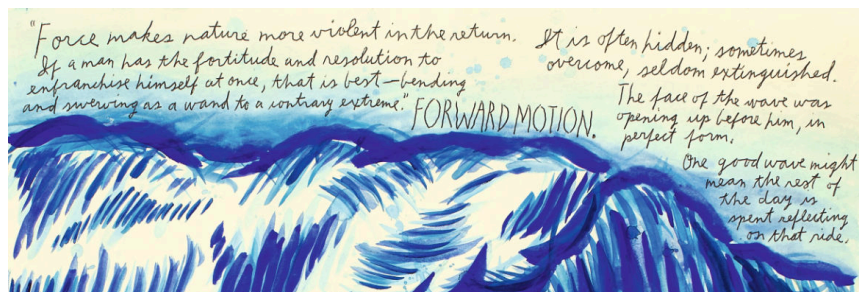 "Force makes nature more violent in the return.
If a man has the fortitude and resolution to
enfranchise himself at once, that is best—bending
and swerving as a wand to a contrary extreme."
FORWARD MOTION.
It is often hidden; sometimes
overcome, seldom extinguished.
The face of the wave was
opening up before him, in
perfect form.
One good wave might
mean the rest of
the day is
spent reflecting
on that ride.